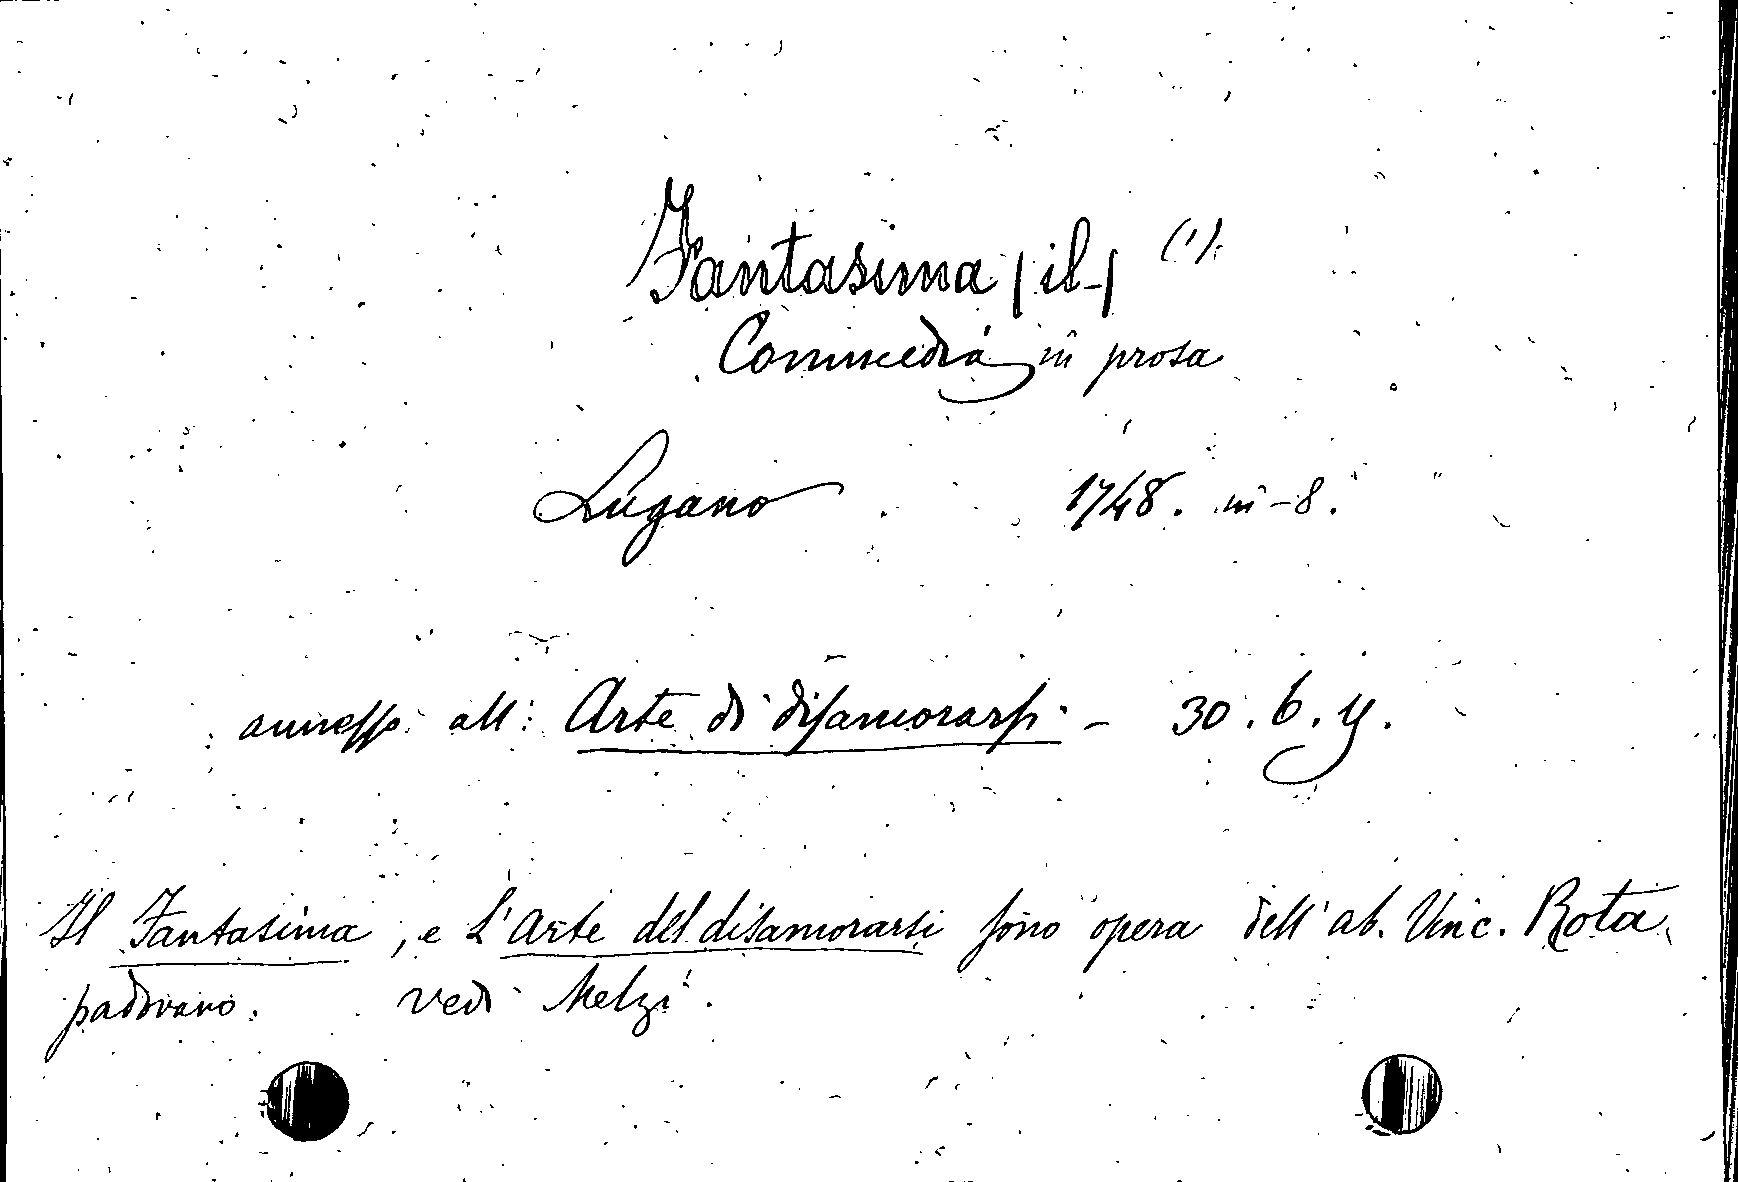 Fantasima (il-) (1).
Commedia in prosa
Lugano 1748. in-8.
annesso all: Arte di disamorarsi - 30.6.y.
Il Fantasima, e L'Arte del disamorarsi sono opera dell'ab. Vinc. Rota
padovano. vedi Melzi.